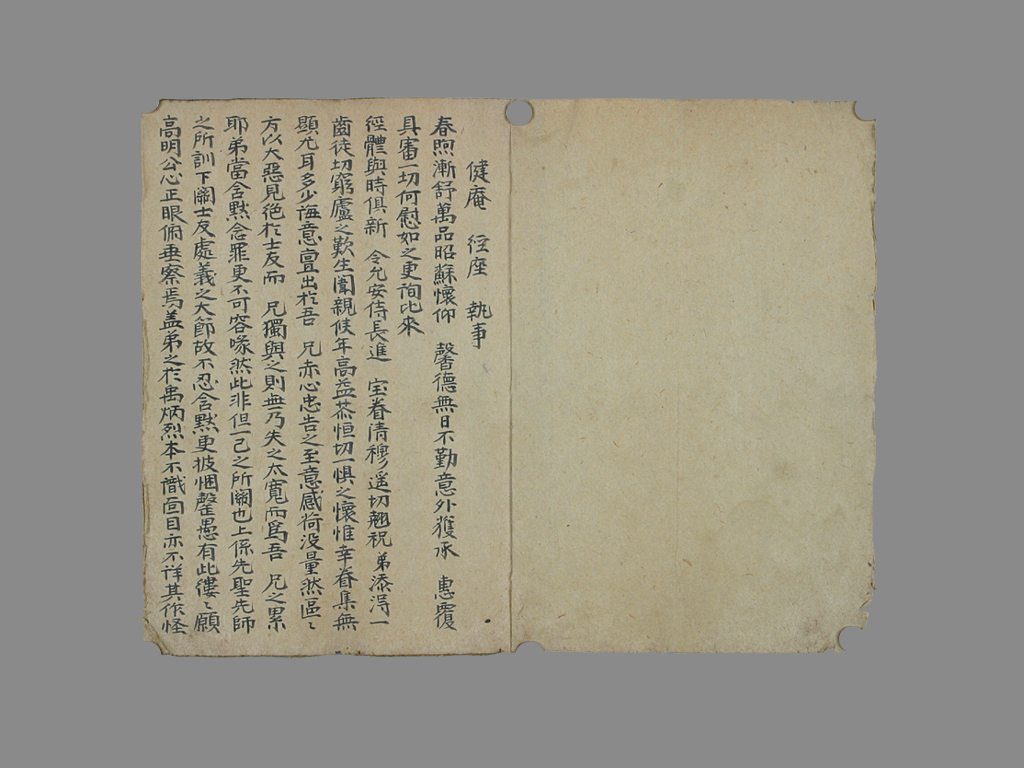 健庵 經座 執事
春煦漸舒萬品昭蘇懷仰 馨德無日不勤意外獲承 惠覆
具審一切何慰如之更詢比來
經體與時俱新 令允安侍長進 宝眷淸穆遥切翹祝 弟添得一
齒徒切窮廬之歎生闈親候年高益恭恒切一惧之懷惟幸眷集無
顯尤耳多少誨意亶出於吾 兄赤心忠告之至意感荷沒量然區〻
方以大惡見絶於士友而 兄獨與之則無乃失之太寬而爲吾 兄之累
耶弟當含黙念罪更不可容喙然此非但一己之所關也上係先聖先師
之所訓下關士友處義之大節故不忍含黙更披悃罄愚有此僂〻願
高明公心正眼俯垂察焉盖弟之於禹炳烈本不識面目亦不詳其作怪